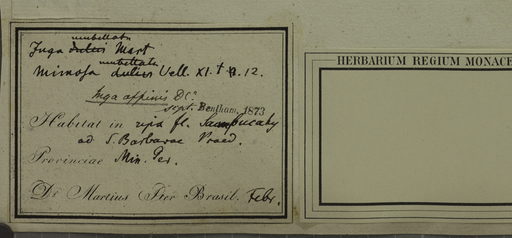 umbellata
Inga dulcis Mart
umbellata
Mimosa dulcis Vell. XI. t. 12.
Inga affinis DC.
scrpt. Bentham, 1873
Habitat in ripa fl. Sapucahy
ad S. Barbarae Praed.
Provinciae Min. Ger.
Dr Martius Iter Brasil. Febr.
HERBARIUM REGIUM MONACE